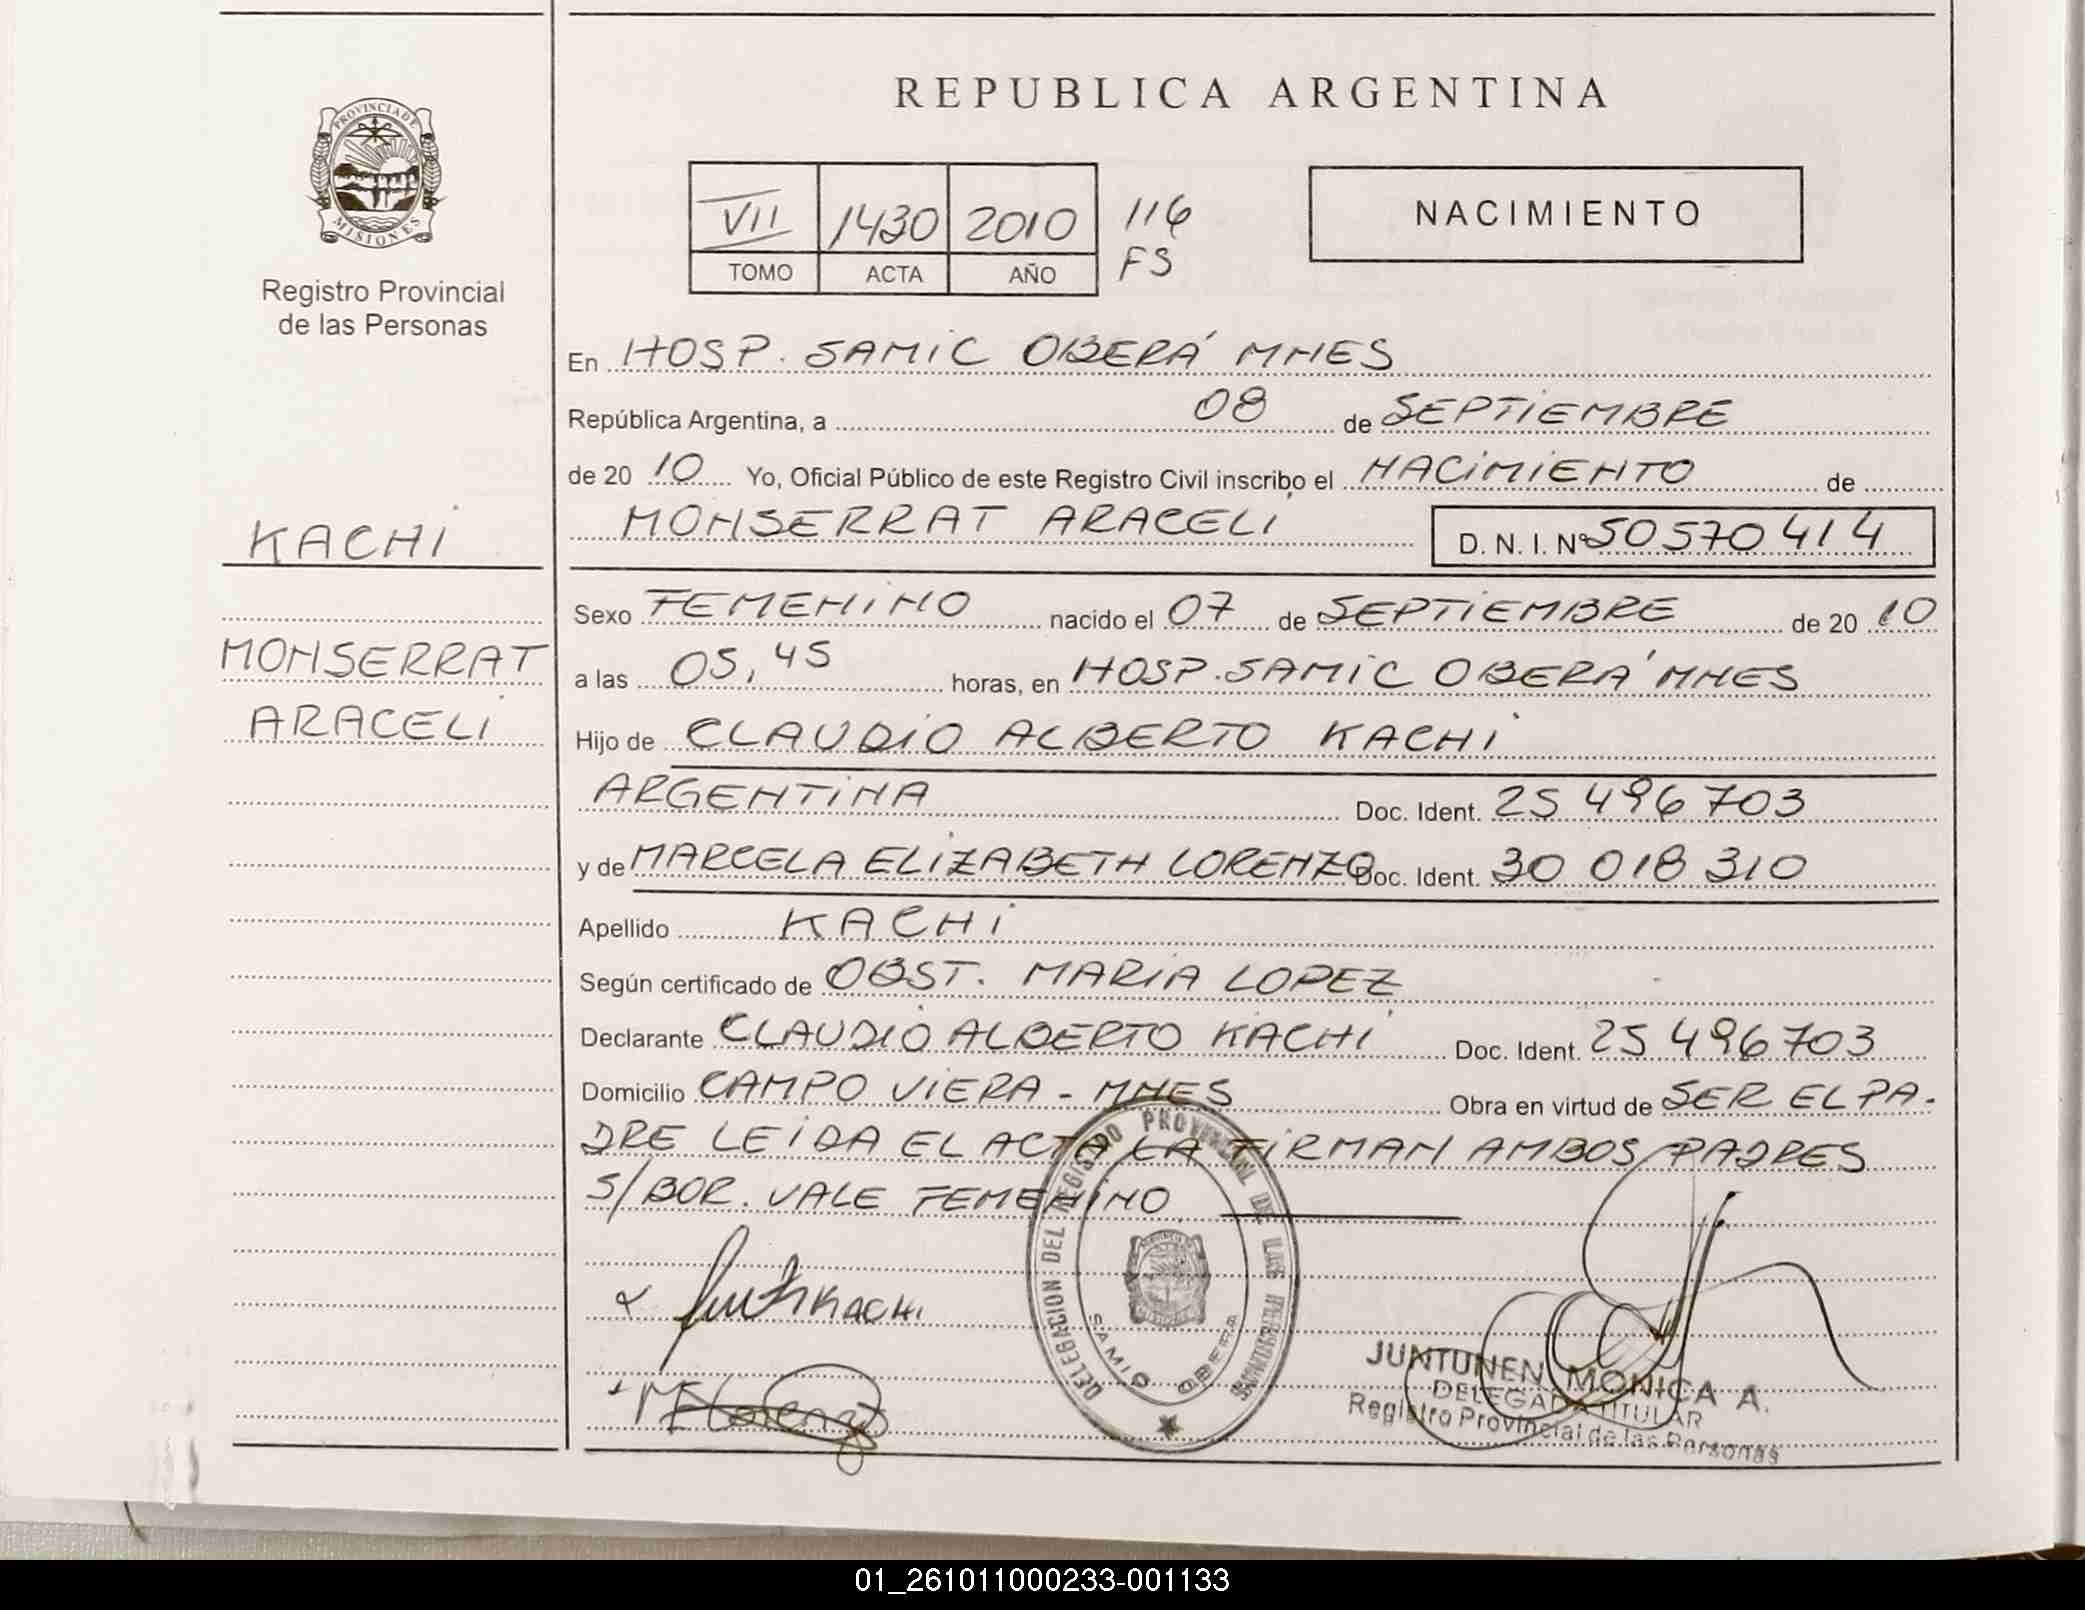 REPUBLICA ARGENTINA
PROVINCIA DE
MISIONES
Registro Provincial
de las Personas
VII 1430 2010 116
TOMO ACTA AÑO FS
NACIMIENTO
En HOSP. SAMIC OBERÁ MNES
República Argentina, a 08 de SEPTIEMBRE
de 20 10 Yo, Oficial Público de este Registro Civil inscribo el NACIMIENTO de
MONSERRAT ARACELI D. N. I. Nº 50570414
KACHI
MONSERRAT
ARACELI
Sexo FEMENINO nacido el 07 de SEPTIEMBRE de 20 10
a las 05,45 horas, en HOSP. SAMIC OBERÁ MNES
Hijo de CLAUDIO ALBERTO KACHI
ARGENTINA Doc. Ident. 25 496 703
y de MARCELA ELIZABETH LORENZO Doc. Ident. 30 018 310
Apellido KACHI
Según certificado de OBST. MARIA LOPEZ
Declarante CLAUDIO ALBERTO KACHI Doc. Ident. 25 496 703
Domicilio CAMPO VIERA - MNES Obra en virtud de SER EL PA-
DRE LEIDA EL ACTA LA FIRMAN AMBOS PADRES
S/BOR. VALE FEMENINO
KACHI
DELEGACION DEL REGISTRO PROVINCIAL DE LAS PERSONAS
SAMIC OBERA
JUNTUNEN MONICA A.
DELEGADA TITULAR
Registro Provincial de las Personas
01_261011000233-001133